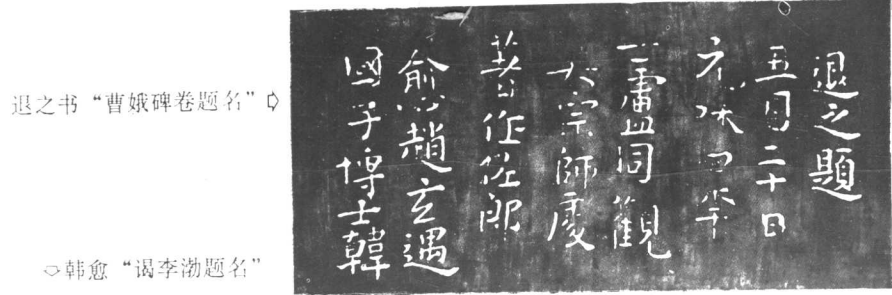 退之书“曹娥碑卷题名”⇨
⇨韩愈“谒李渤题名”
國子博士韓
愈趙玄遇
著作佐郎
樊宗師處
士盧同觀
元和四年
五月二十日
退之題